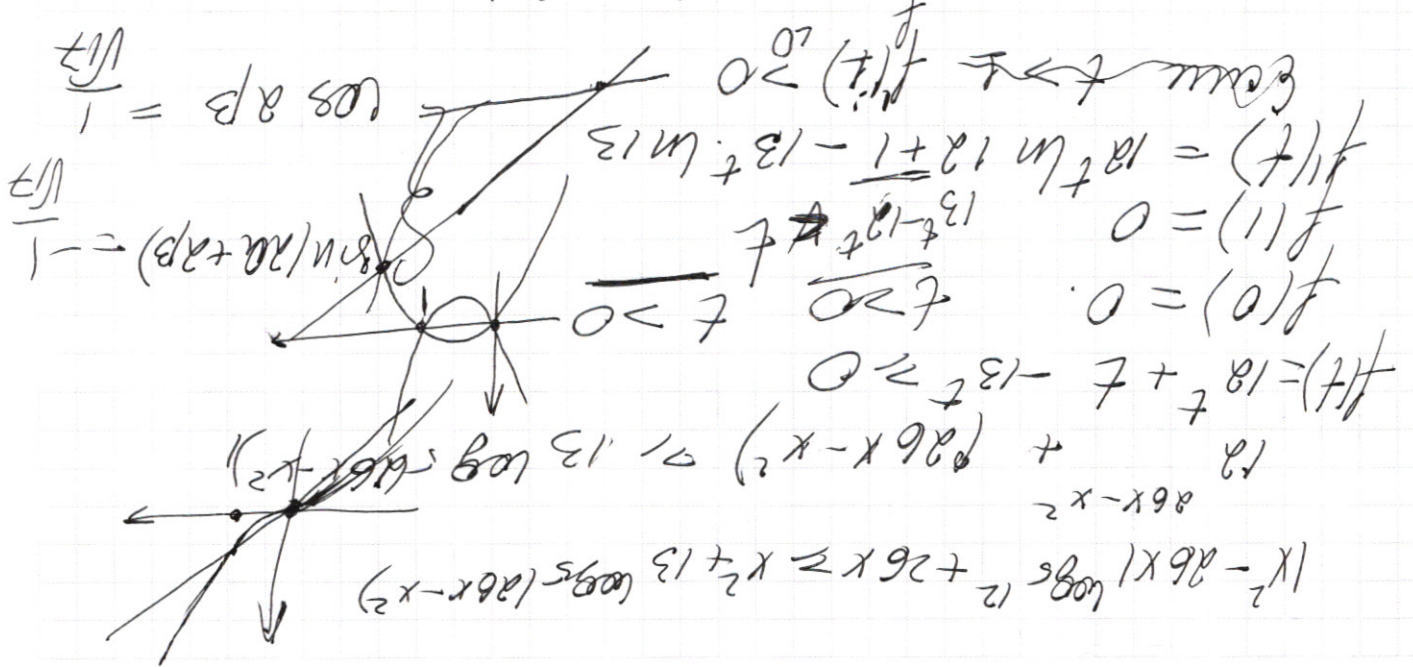 |x² - 26x|^{log₅ 12} + 26x ≥ x² + 13^{log₅(26x - x²)}
26x - x²
12 + (26x - x²) ≥ 13 log₅(26x - x²)
f(t) = 12^t + t - 13^t ≥ 0
f(0) = 0. t > 0 t > 0
f(1) = 0 13^t - 12^t t
sin(2α + 2β) = -1/√17
f'(t) = 12^t ln 12 + 1 - 13^t · ln 13
Если t > 1 f'(t) > 0
<0
cos 2β = 1/√17